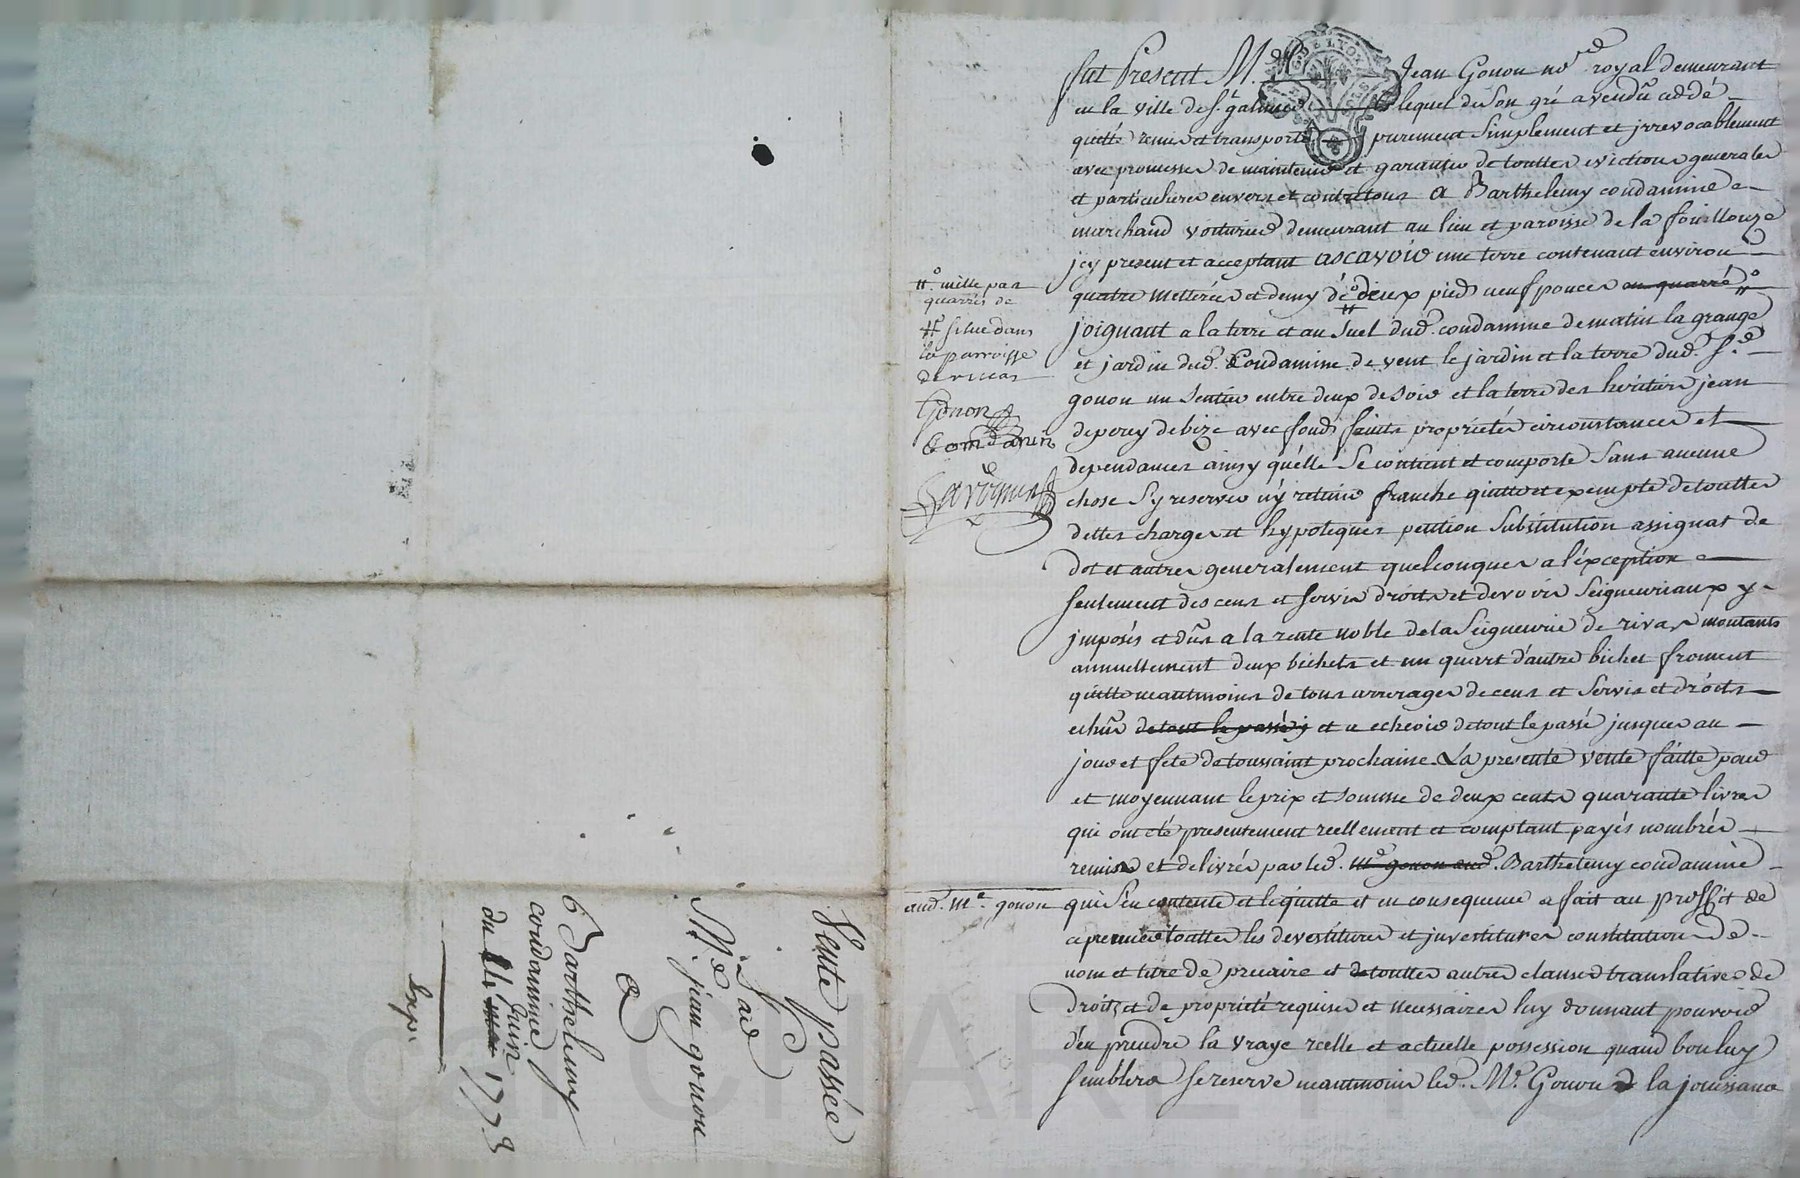 fut Present M.e Jean Gonon no.re royal demeurant
en la ville de St galmier lequel de son gré a vendu ceddé
quitté remis et transporté purement simplement et jrrevocablement
avec promesses de maintenir et garantir de touttes evictions generales
et particulieres envers et contre tous a Barthelemy condamine
marchand voiturier demeurant au lieu et paroisse de la fouillouze
jcy present et acceptant ascavoir une terre contenant environ
quatre metterées et demy de deux pieds neuf pouces en quarré
joignant a la terre et au suel dud. condamine de matin la grange
et jardin dud. Condamine de vent le jardin et la terre dud. S.r
gonon un sentier entre deux de soir et la terre des heritiers jean
deporey de bize avec fonds fruits proprietés circonstances et
dependances ainsy qu'élle se contient et comporte sans aucune
chose s'y reserver n'y retenir franche quitte et exempte de touttes
dettes charges et hypoteques petition substitution assignat de
dot et autres generalement quelconques a l'éxception
seulement des cens et servis droits et devoirs seigneuriaux y
jmposés et dûs a la rente noble de la seigneurie de rivas montants
annuellement deux bichets et un quart d'autre bichet froment
quitte neantmoins de tous arrerages de cens et servis et droits
echûs de tout le passé et a echeoir de tout le passé jusques au
jour et fete de toussaint prochaine. La presente vente faitte pour
et moyennant le prix et somme de deux cents quarante livres
qui ont été presentement reellement et comptant payés nombrés
remis et delivrés par led. m.e gonon aud. Barthelemy condamine
qui s'en contente et le quitte et en consequence a fait au proffit de
ce premier touttes les devestitures et jnvestitures constitution de
nom et titre de precaire et de touttes autres clauses translatives de
droits et de proprieté requises et necessaires luy donnant pouvoir
d'en prendre la vraye réelle et actuelle possession quand bon luy
semblera se reserve neantmoins led. M.e Gonon la jouissance
mille pas
quarrés de
située dans
la parroisse
de rivas
Gonon
Condamin
aud. M.e gonon
Vente passée
Par
M.e jean gonon
a
Barthelemy
condamine
du 11 juin 1773
Exp.